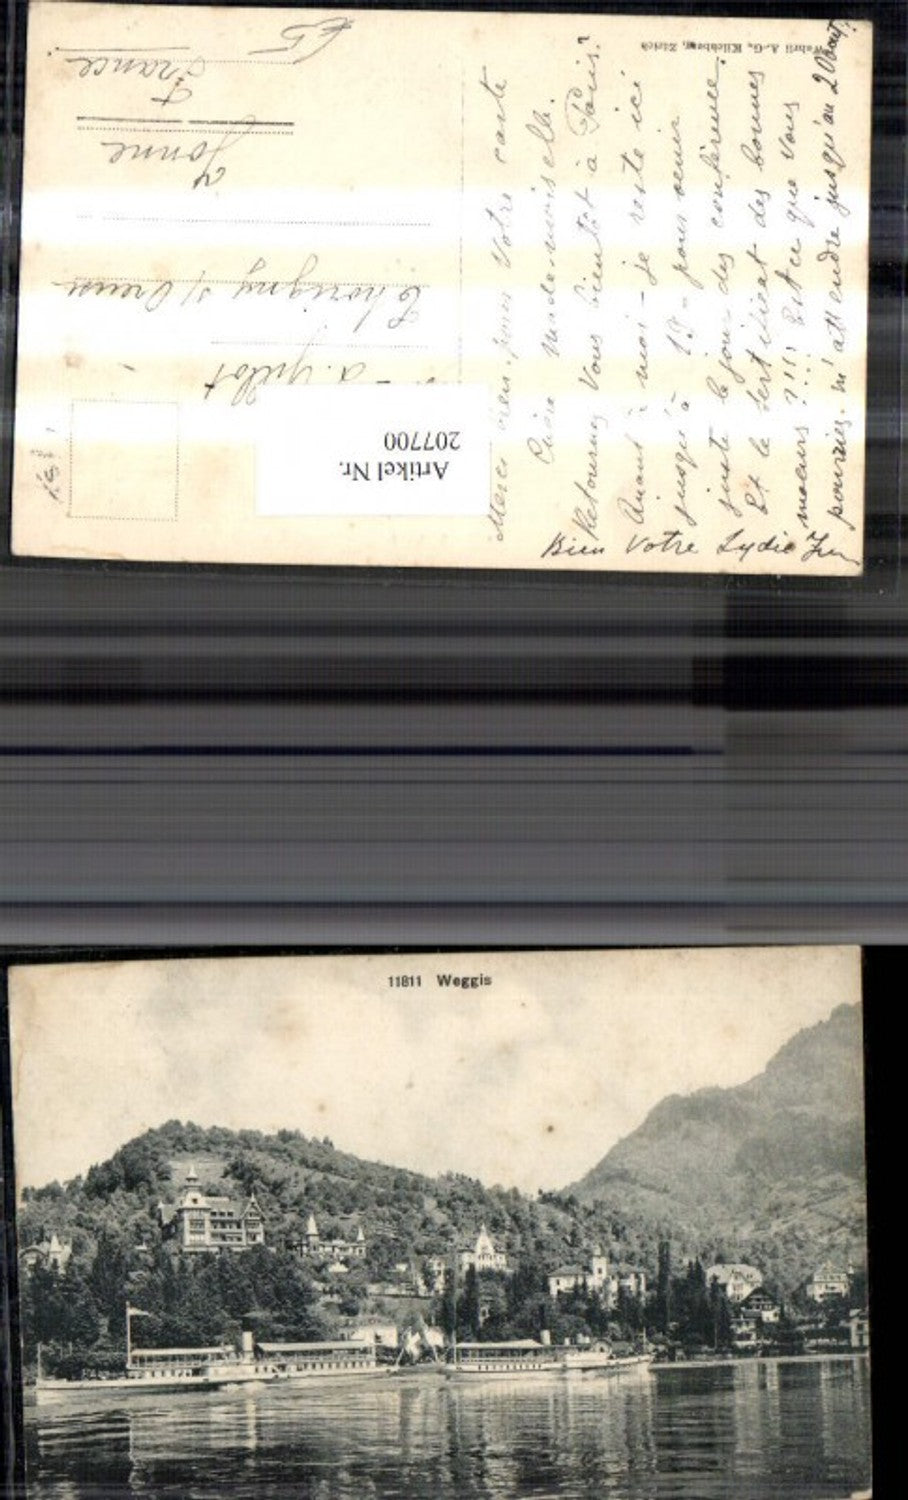 Merci bien pour Votre carte
Chère Mademoiselle.
Retournez Vous bientôt à Paris?
Quant à moi - je reste ici
jusqu'à 15 - pour venir
juste le jour des conférences.
Et le certificat des bonnes
moeurs ?!!! Est ce que Vous
pourriez m'attendre jusqu'au 20 août?
Bien Votre Lydie
Wehrli A.-G., Kilchberg, Zürich
A. Guillot
Thorigny s/ Oreuse
Yonne
France
Artikel Nr.
207700
11811 Weggis